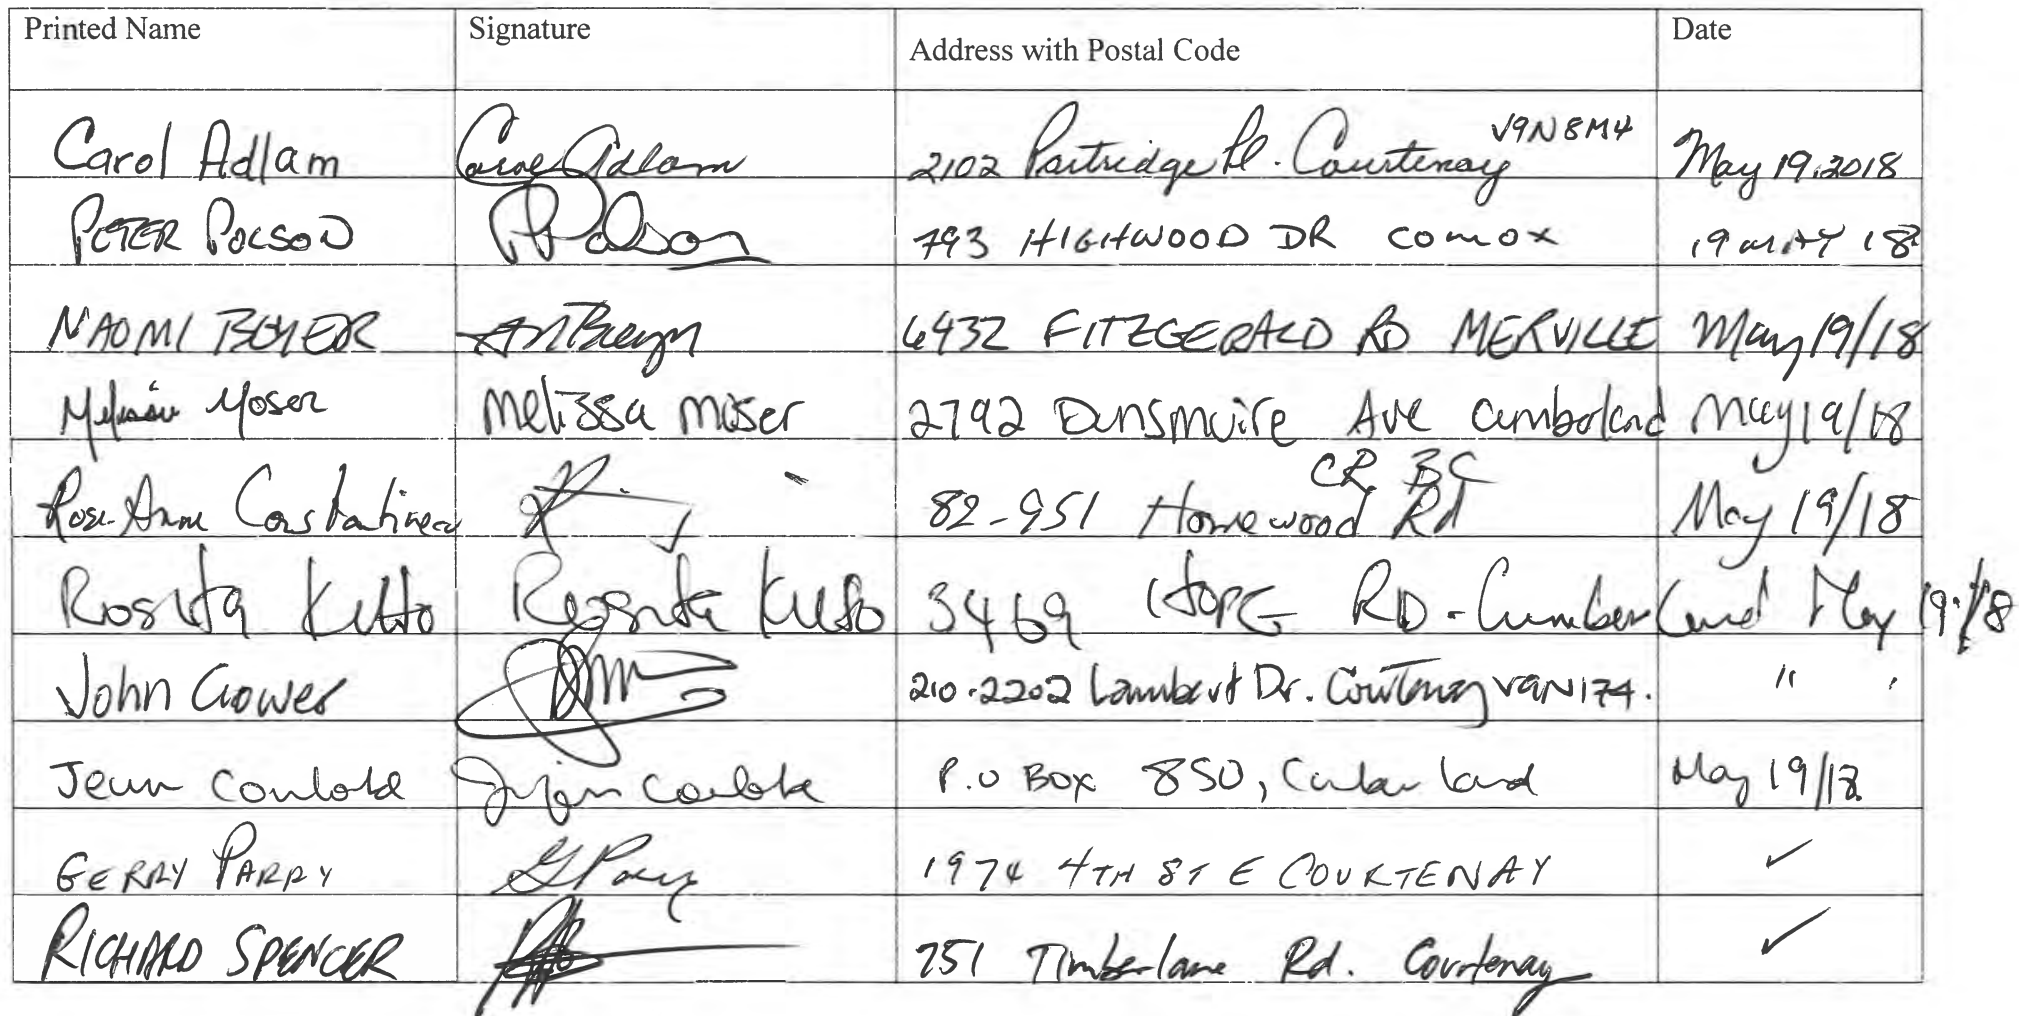 Printed Name Signature Address with Postal Code Date
Carol Adlam Carol Adlam 2102 Partridge Pl. Courtenay V9N 8M4 May 19, 2018
PETER POLSON P Polson 793 HIGHWOOD DR COMOX 19 MAY 18
NAOMI BOYER 6432 FITZGERALD RD MERVILLE May 19/18
Melissa Moser Melissa Moser 2792 Dunsmuire Ave Cumberland May 19/18
Rose-Anne Constantineau 82-951 Homewood Rd CR BC May 19/18
Rosita Kitto Rosita Kitto 3469 HOPE RD - Cumberland May 19/18
John Gower 210-2202 Lambert Dr. Courtenay V9N 1Z4. "
Jean P.O Box 850, Cumberland May 19/18
GERRY PARRY G Parry 1974 4TH ST E COURTENAY ✓
RICHARD SPENCER 751 Timberlane Rd. Courtenay ✓